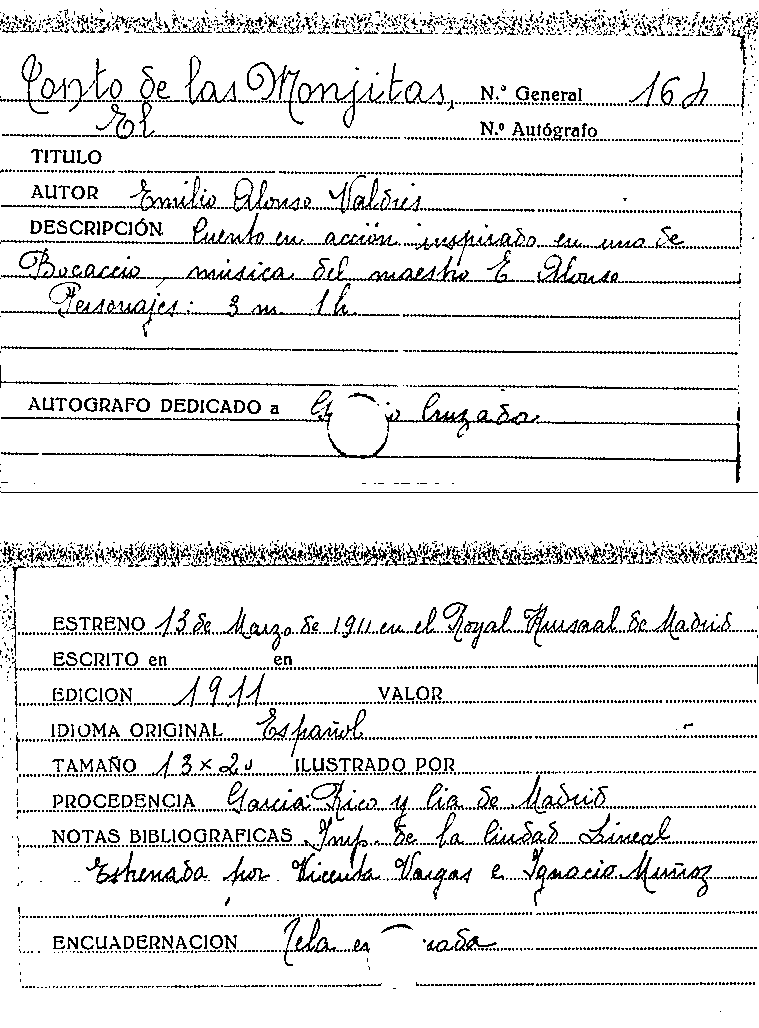 Conto de las Monjitas, N.º General 16
El N.º Autógrafo
TITULO
AUTOR Emilio Alonso Valdrés
DESCRIPCIÓN Cuento en acción inspirado en uno de
Bocaccio, música del maestro E Alonso
Personajes: 3 m. 1 h.
AUTOGRAFO DEDICADO a Cruzado
ESTRENO 13 de Marzo de 1911 en el Royal Kursaal de Madrid
ESCRITO en en
EDICION 1911 VALOR
IDIOMA ORIGINAL Español
TAMAÑO 13 x 20 ILUSTRADO POR
PROCEDENCIA Garcia Rico y Cia de Madrid
NOTAS BIBLIOGRAFICAS Imp. de la Ciudad Lineal
Estrenada por Vicenta Vargas e Ignacio Muñoz
ENCUADERNACION Tela